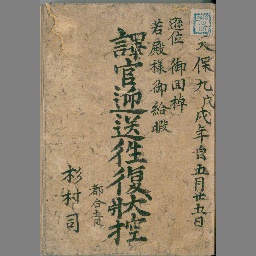 天保九戊戌年自五月廿五日
退位御回棹
若殿様御給暇
譯官迎送往復大控
都合
杉村司